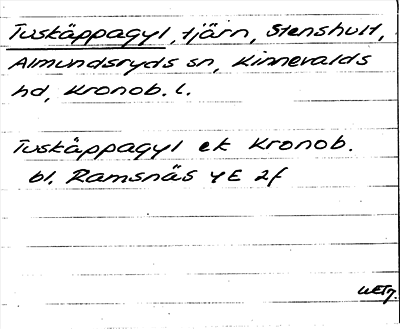 Tuskäppagyl, tjärn, Stenshult,
Almundsryds sn, Kinnevalds
hd, Kronob. l.
Tuskäppagyl ek Kronob.
bl. Ramsnäs 4E 2f